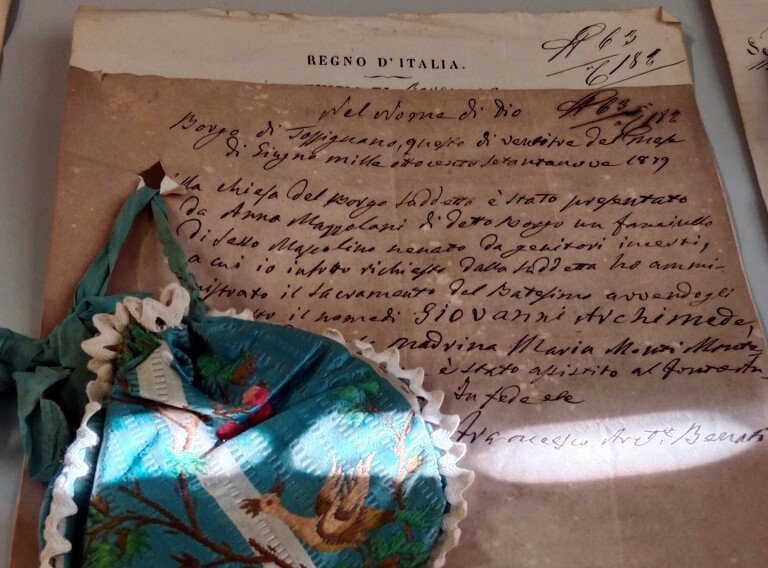 REGNO D'ITALIA.
N 63
182
Nel Nome di Dio
N 63
182
Borgo di Tossignano, questo di ventitre del mese
di Giugno mille ottocento setantanove 1879
lla chiesa del Borgo suddetto è stato presentato
da Anna Mazzolani di detto Borgo un fanciullo
di sesso Mascolino nenato da genitori incerti,
a cui io infrto richiesto dalla suddetta ho ammi-
nistrato il Sacramento del Batesimo avvendogli
il nome di Giovanni Archimede,
madrina Maria Monti
è stato assistito al fonte
In fede
Francesco Arc.e